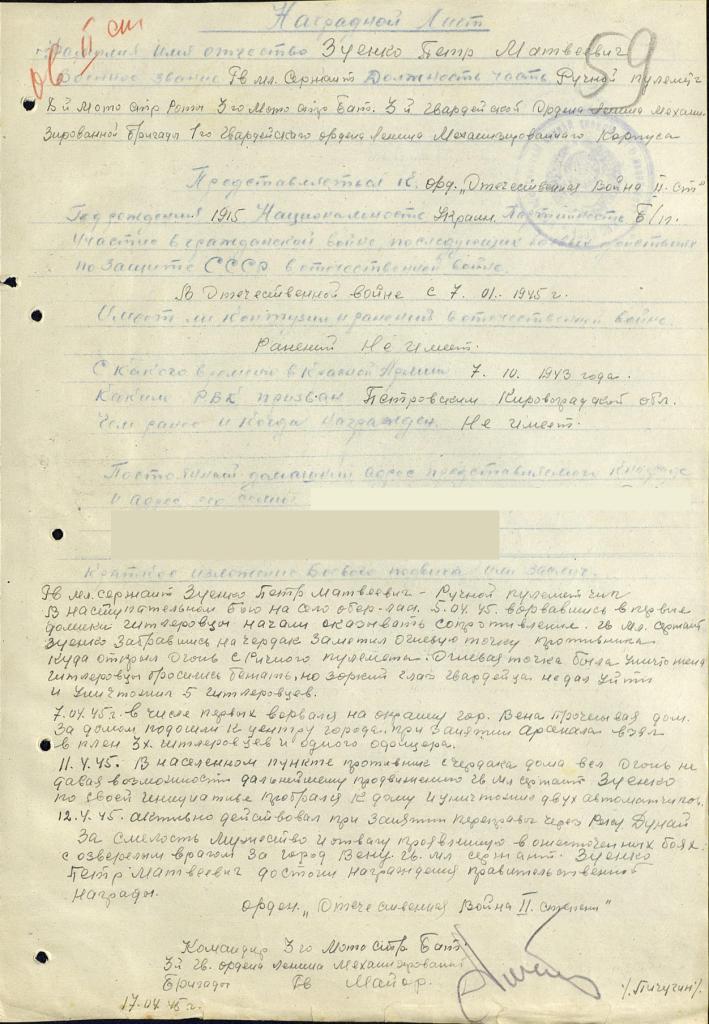 Наградной Лист
59
ОВ II ст
Фамилия имя отчество Зуенко Петр Матвеевич
Военное звание Гв мл. Сержант Должность часть Ручной пулемётч
3й Мото стр Роты 3го Мото стр Бат. 3й Гвардейской Ордена Ленина Механи
зированной Бригады 1го Гвардейского ордена Ленина Механизированного Корпуса
Представляеться к орд. „Отечественная Война II ст"
Год рождения 1915 Национальность Украин. Партийность Б/п.
Участие в гражданской войне, последующих боевых действиях
по защите СССР в отечественной войне.
В Отечественной войне с 7. 01. 1945 г.
Имеет ли контузии и ранения в отечественной войне.
Ранений Не имеет.
С какого времени в Красной Армии 7. 10. 1943 года.
Каким РВК призван Петровским Кировоградской обл.
Чем ранее и когда награжден. Не имеет.
Постоянный домашний адрес представляемого к награде
и адрес его семьи
Краткое изложение Боевого подвига или заслуг.
Гв мл. сержант Зуенко Петр Матвеевич - Ручной пулеметчик
В наступательном бою на село обер-лаа. 5.04.45. ворвавшись в первые
домики гитлеровцы начали оказывать сопротивление. Гв мл. сержант
Зуенко Забравшись на чердак Заметил огневую точку противника
Куда открыл Огонь с Ручного пулемета. Огневая точка была уничтожена
гитлеровцы бросились бежать, но зоркий глаз гвардейца не дал уйти
и уничтожил 5 гитлеровцев.
7.04.45 г. в числе первых ворвался на окраину гор. Вена Прочесывая дом.
За домом подошли к центру города. при занятии Арсенала взял
в плен 3х гитлеровцев и одного офицера.
11.4.45. В населенном пункте противник с чердака дома вел Огонь не
давая возможности дальнейшему продвижению Гв мл сержант Зуенко
по своей инициативе пробрался к дому и уничтожил двух автоматчиков.
12.4.45. активно действовал при Занятии переправы через Реку Дунай
За смелость Мужество и отвагу проявленную в ожесточенных боях
с озверелым врагом За город Вену. Гв. мл сержант. Зуенко
Петр Матвеевич достоин награждения правительственной
награды.
орден „Отечественная Война II степени"
Командир 3го Мото Стр. Бат.
3й Гв. ордена Ленина Механизированной
Бригады Гв Майор. /Пичугин/
17.04.45 г.